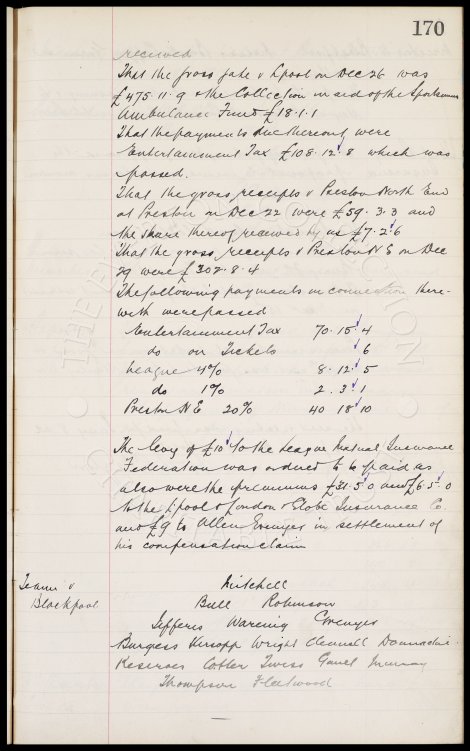 170
received
That the gross gate v Lpool on Dec 26 was
£475.11.9 & the Collection in aid of the Sportsmans
Ambulance Fund £18.1.1
That the payments due thereout were
Entertainment Tax £108.12.8 which was
passed.
That the gross receipts v Preston North End
at Preston on Dec 22 were £59.3.3 and
the share thereof received by us £7.2.6
That the gross receipts v Preston N E on Dec
29 were £302.8.4
The following payments in connection there-
with were passed
Entertainment Tax 70.15.4
do on Tickets 6
League 4% 8.12.5
do 1% 2.3.1
Preston N E 20% 40 18 10
The levy of £10 to the League Mutual Insurance
Federation was ordered to be paid as
also were the premiums £31.5.0 and £6.5.0
to the Lpool & London & Globe Insurance Co
and £9 to Allen Grenyer in settlement of
his compensation claim
Team v
Blackpool
Mitchell
Bull Robinson
Jefferis Wareing Grenyer
Burgess Kirsopp Wright Clennell Donnachie.
Reserves Cotter Twiss Gault Murray
Thompson Fleetwood